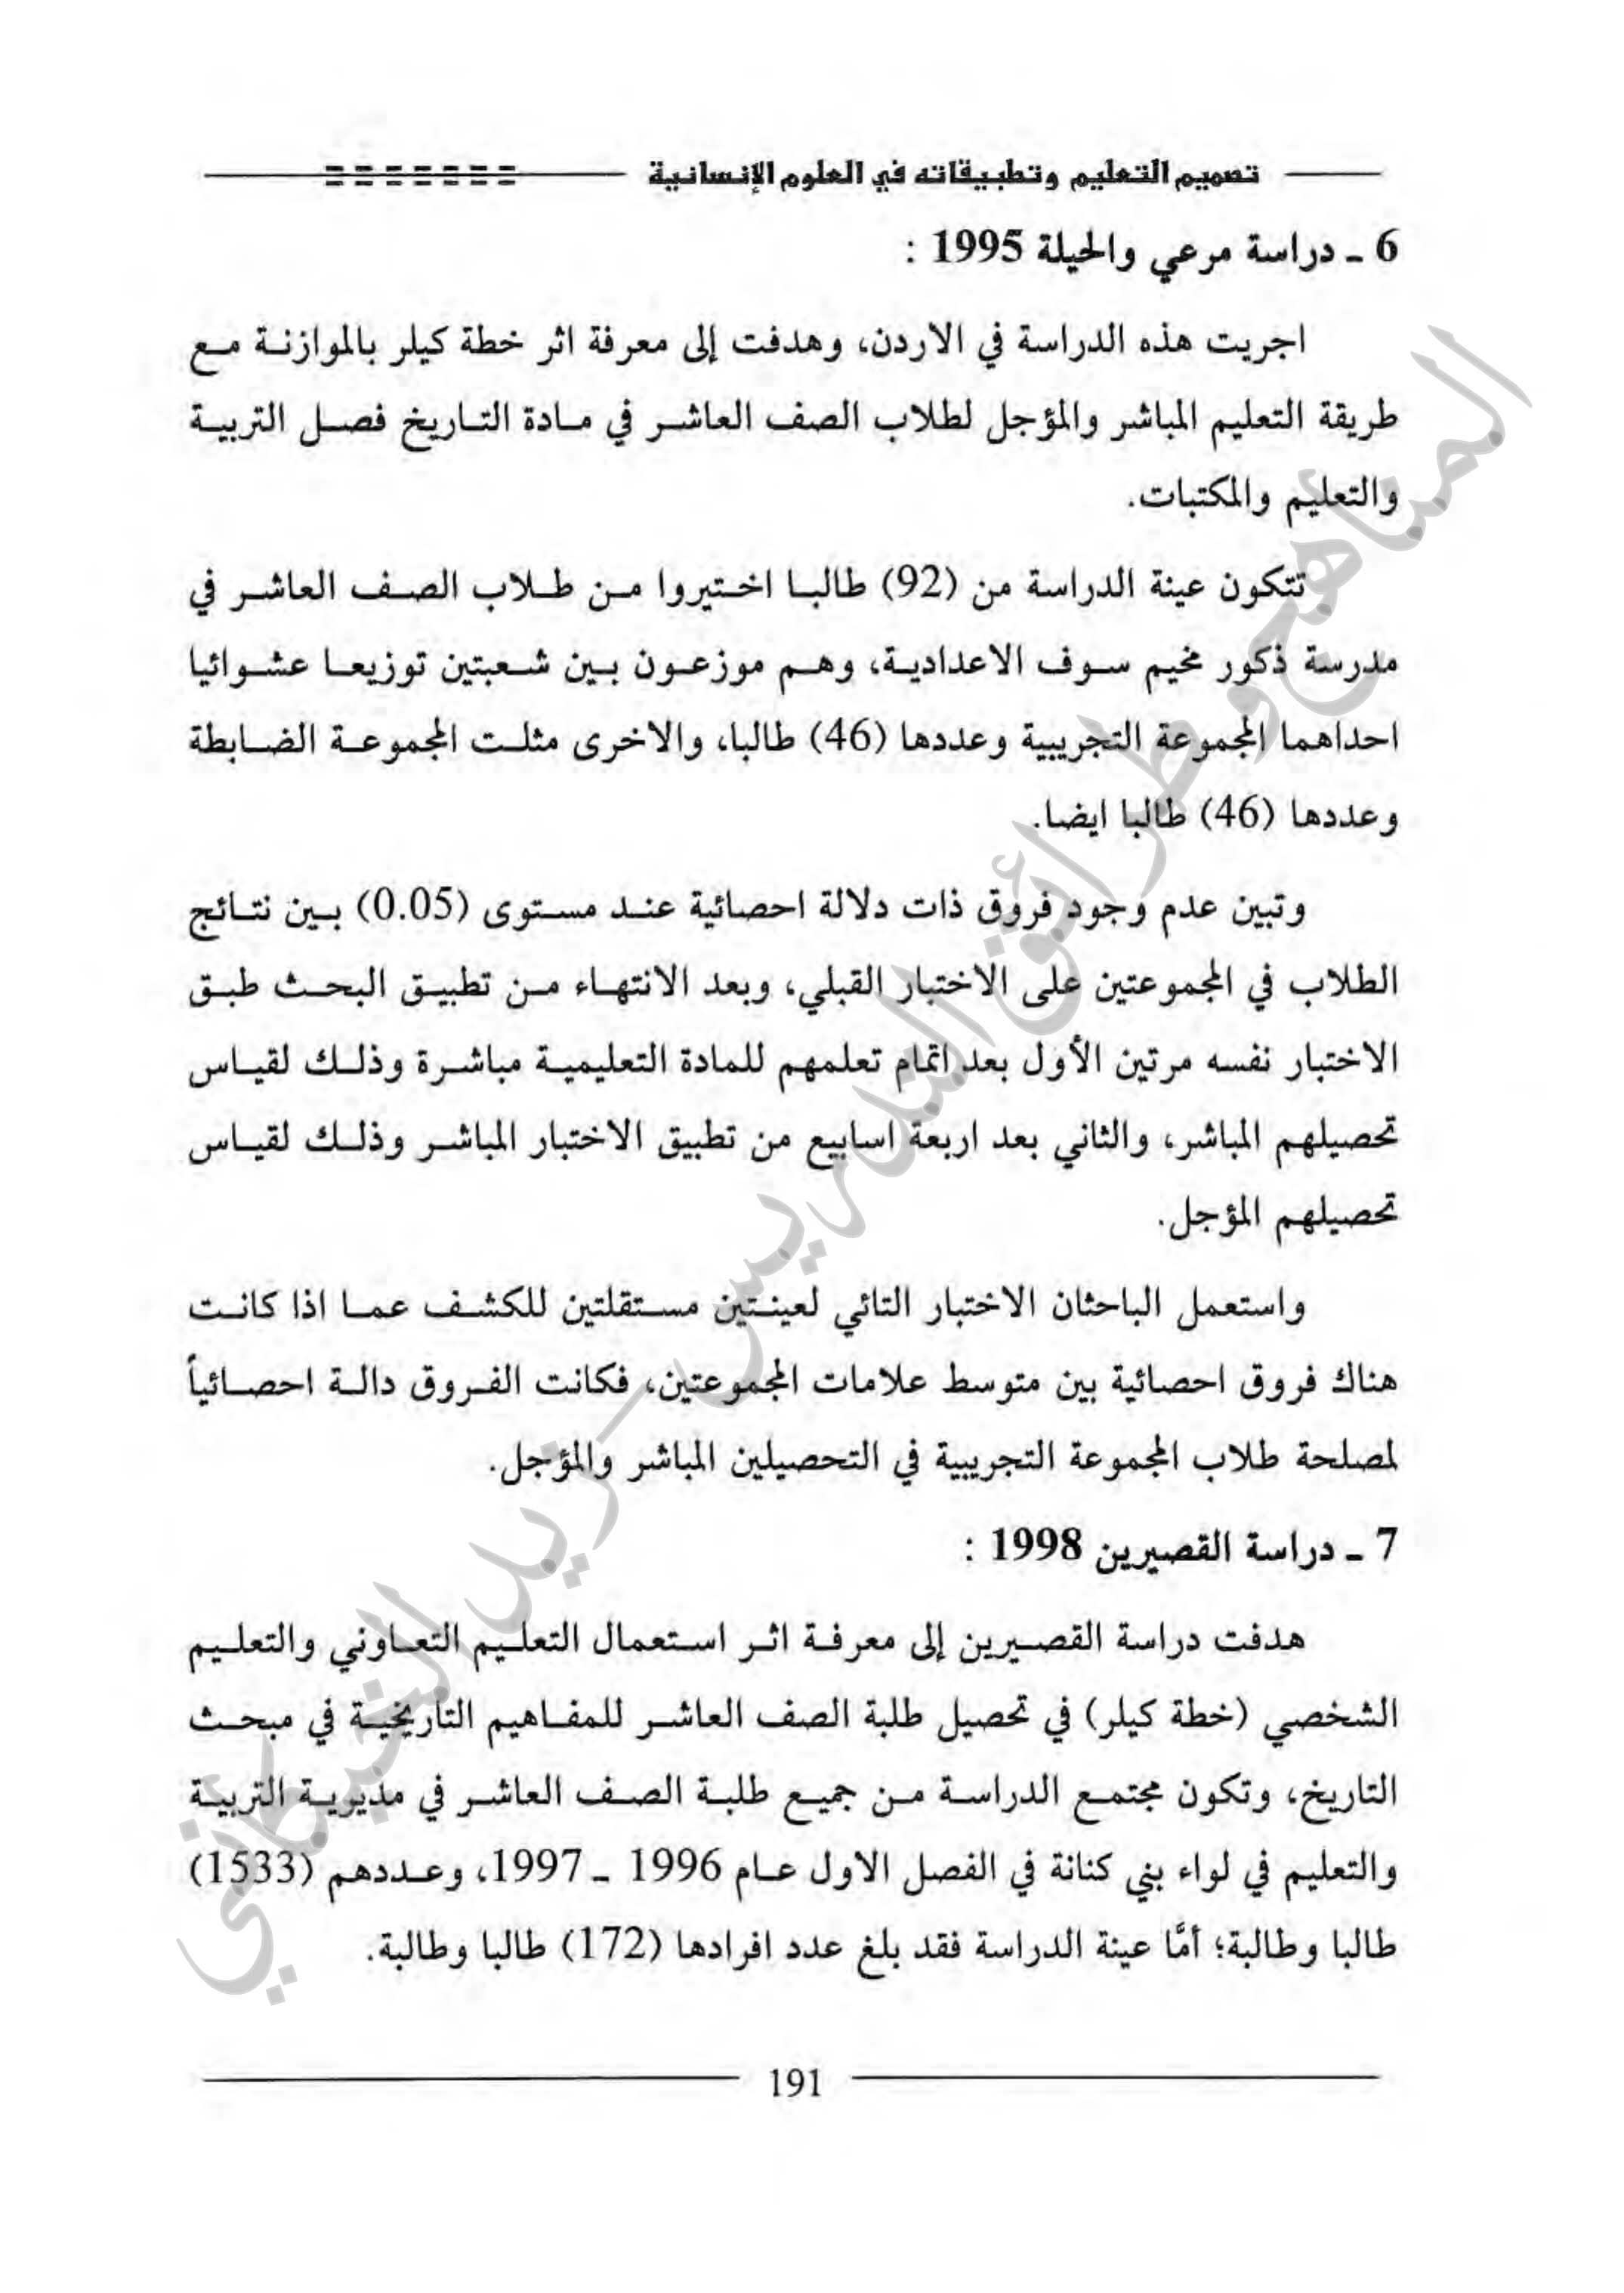 تصميم التعليم وتطبيقاته في العلوم الإنسانية
6 ـ دراسة مرعي والحيلة 1995 :
اجريت هذه الدراسة في الاردن، وهدفت إلى معرفة اثر خطة كيلر بالموازنة مع
طريقة التعليم المباشر والمؤجل لطلاب الصف العاشر في مادة التاريخ فصل التربية
والتعليم والمكتبات.
تتكون عينة الدراسة من (92) طالبا اختيروا من طلاب الصف العاشر في
مدرسة ذكور مخيم سوف الاعدادية، وهم موزعون بين شعبتين توزيعا عشوائيا
احداهما المجموعة التجريبية وعددها (46) طالبا، والاخرى مثلت المجموعة الضابطة
وعددها (46) طالبا ايضا.
وتبين عدم وجود فروق ذات دلالة احصائية عند مستوى (0.05) بين نتائج
الطلاب في المجموعتين على الاختبار القبلي، وبعد الانتهاء من تطبيق البحث طبق
الاختبار نفسه مرتين الأول بعد اتمام تعلمهم للمادة التعليمية مباشرة وذلك لقياس
تحصيلهم المباشر، والثاني بعد اربعة اسابيع من تطبيق الاختبار المباشر وذلك لقياس
تحصيلهم المؤجل.
واستعمل الباحثان الاختبار التائي لعينتين مستقلتين للكشف عما اذا كانت
هناك فروق احصائية بين متوسط علامات المجموعتين، فكانت الفروق دالة احصائياً
لمصلحة طلاب المجموعة التجريبية في التحصيلين المباشر والمؤجل.
7 ـ دراسة القصيرين 1998 :
هدفت دراسة القصيرين إلى معرفة اثر استعمال التعليم التعاوني والتعليم
الشخصي (خطة كيلر) في تحصيل طلبة الصف العاشر للمفاهيم التاريخية في مبحث
التاريخ، وتكون مجتمع الدراسة من جميع طلبة الصف العاشر في مديرية التربية
والتعليم في لواء بني كنانة في الفصل الاول عام 1996 ـ 1997، وعددهم (1533)
طالبا وطالبة؛ أمَّا عينة الدراسة فقد بلغ عدد افرادها (172) طالبا وطالبة.
191
المناهج وطرائق التدريس – زيد الخيكاني